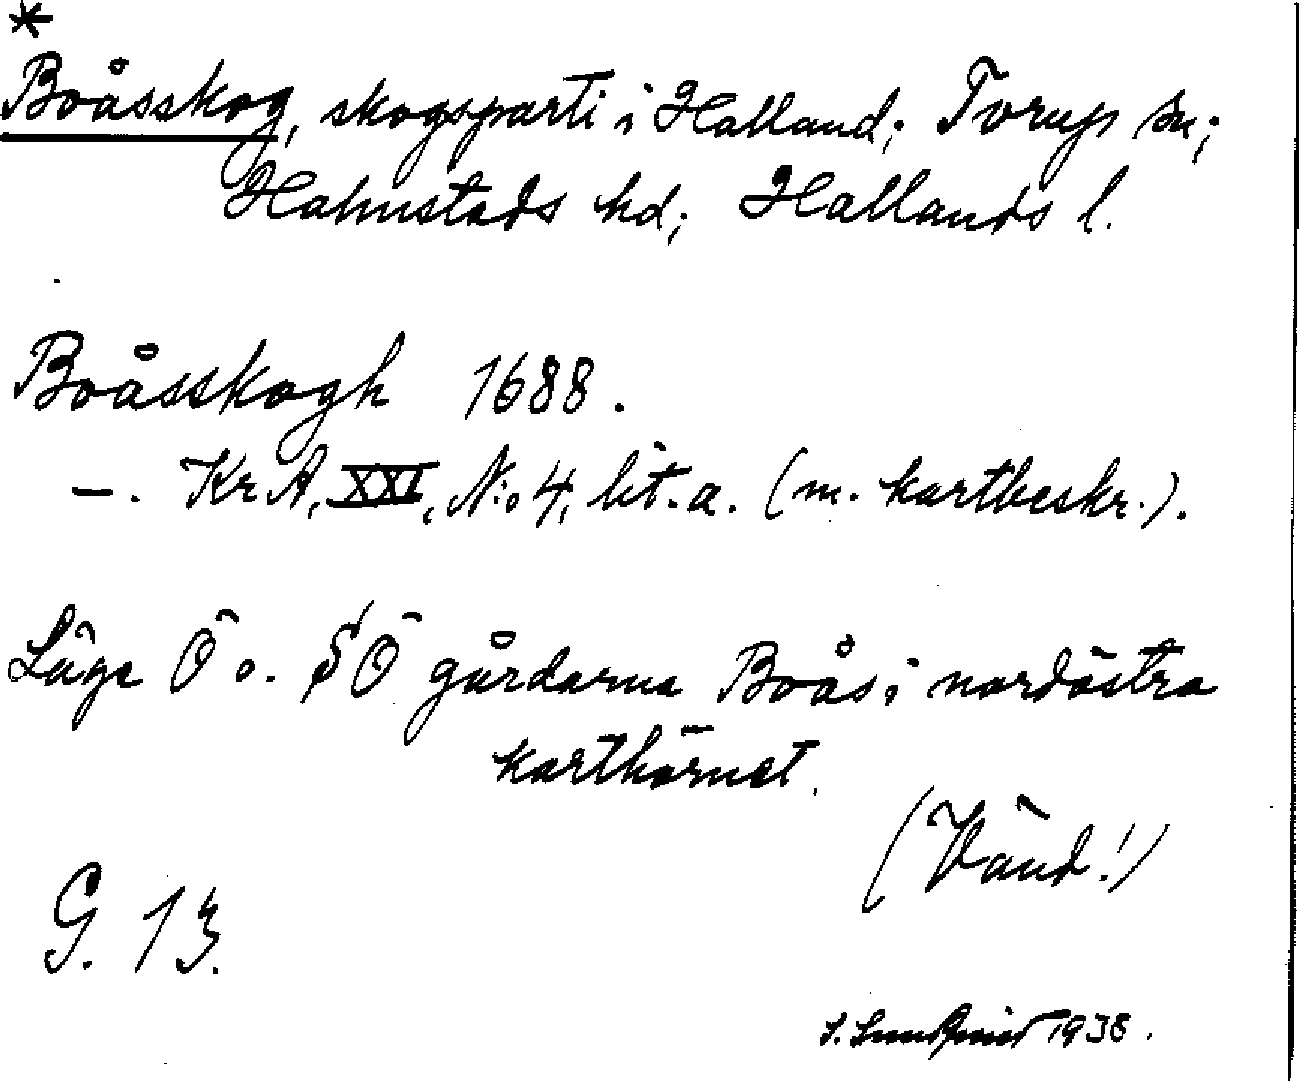 *
Boåsskog, skogsparti i Halland; Torup sn;
Halmstads hd; Hallands l.
Boåsskogh 1688.
—. KrA, XXI, N:o 4, lit. a. (m. kartbeskr.).
Läge Ö o. SÖ gårdarna Boås i nordöstra
karthörnet.
(Vänd!)
G. 13.
S. Lundqvist 1938.